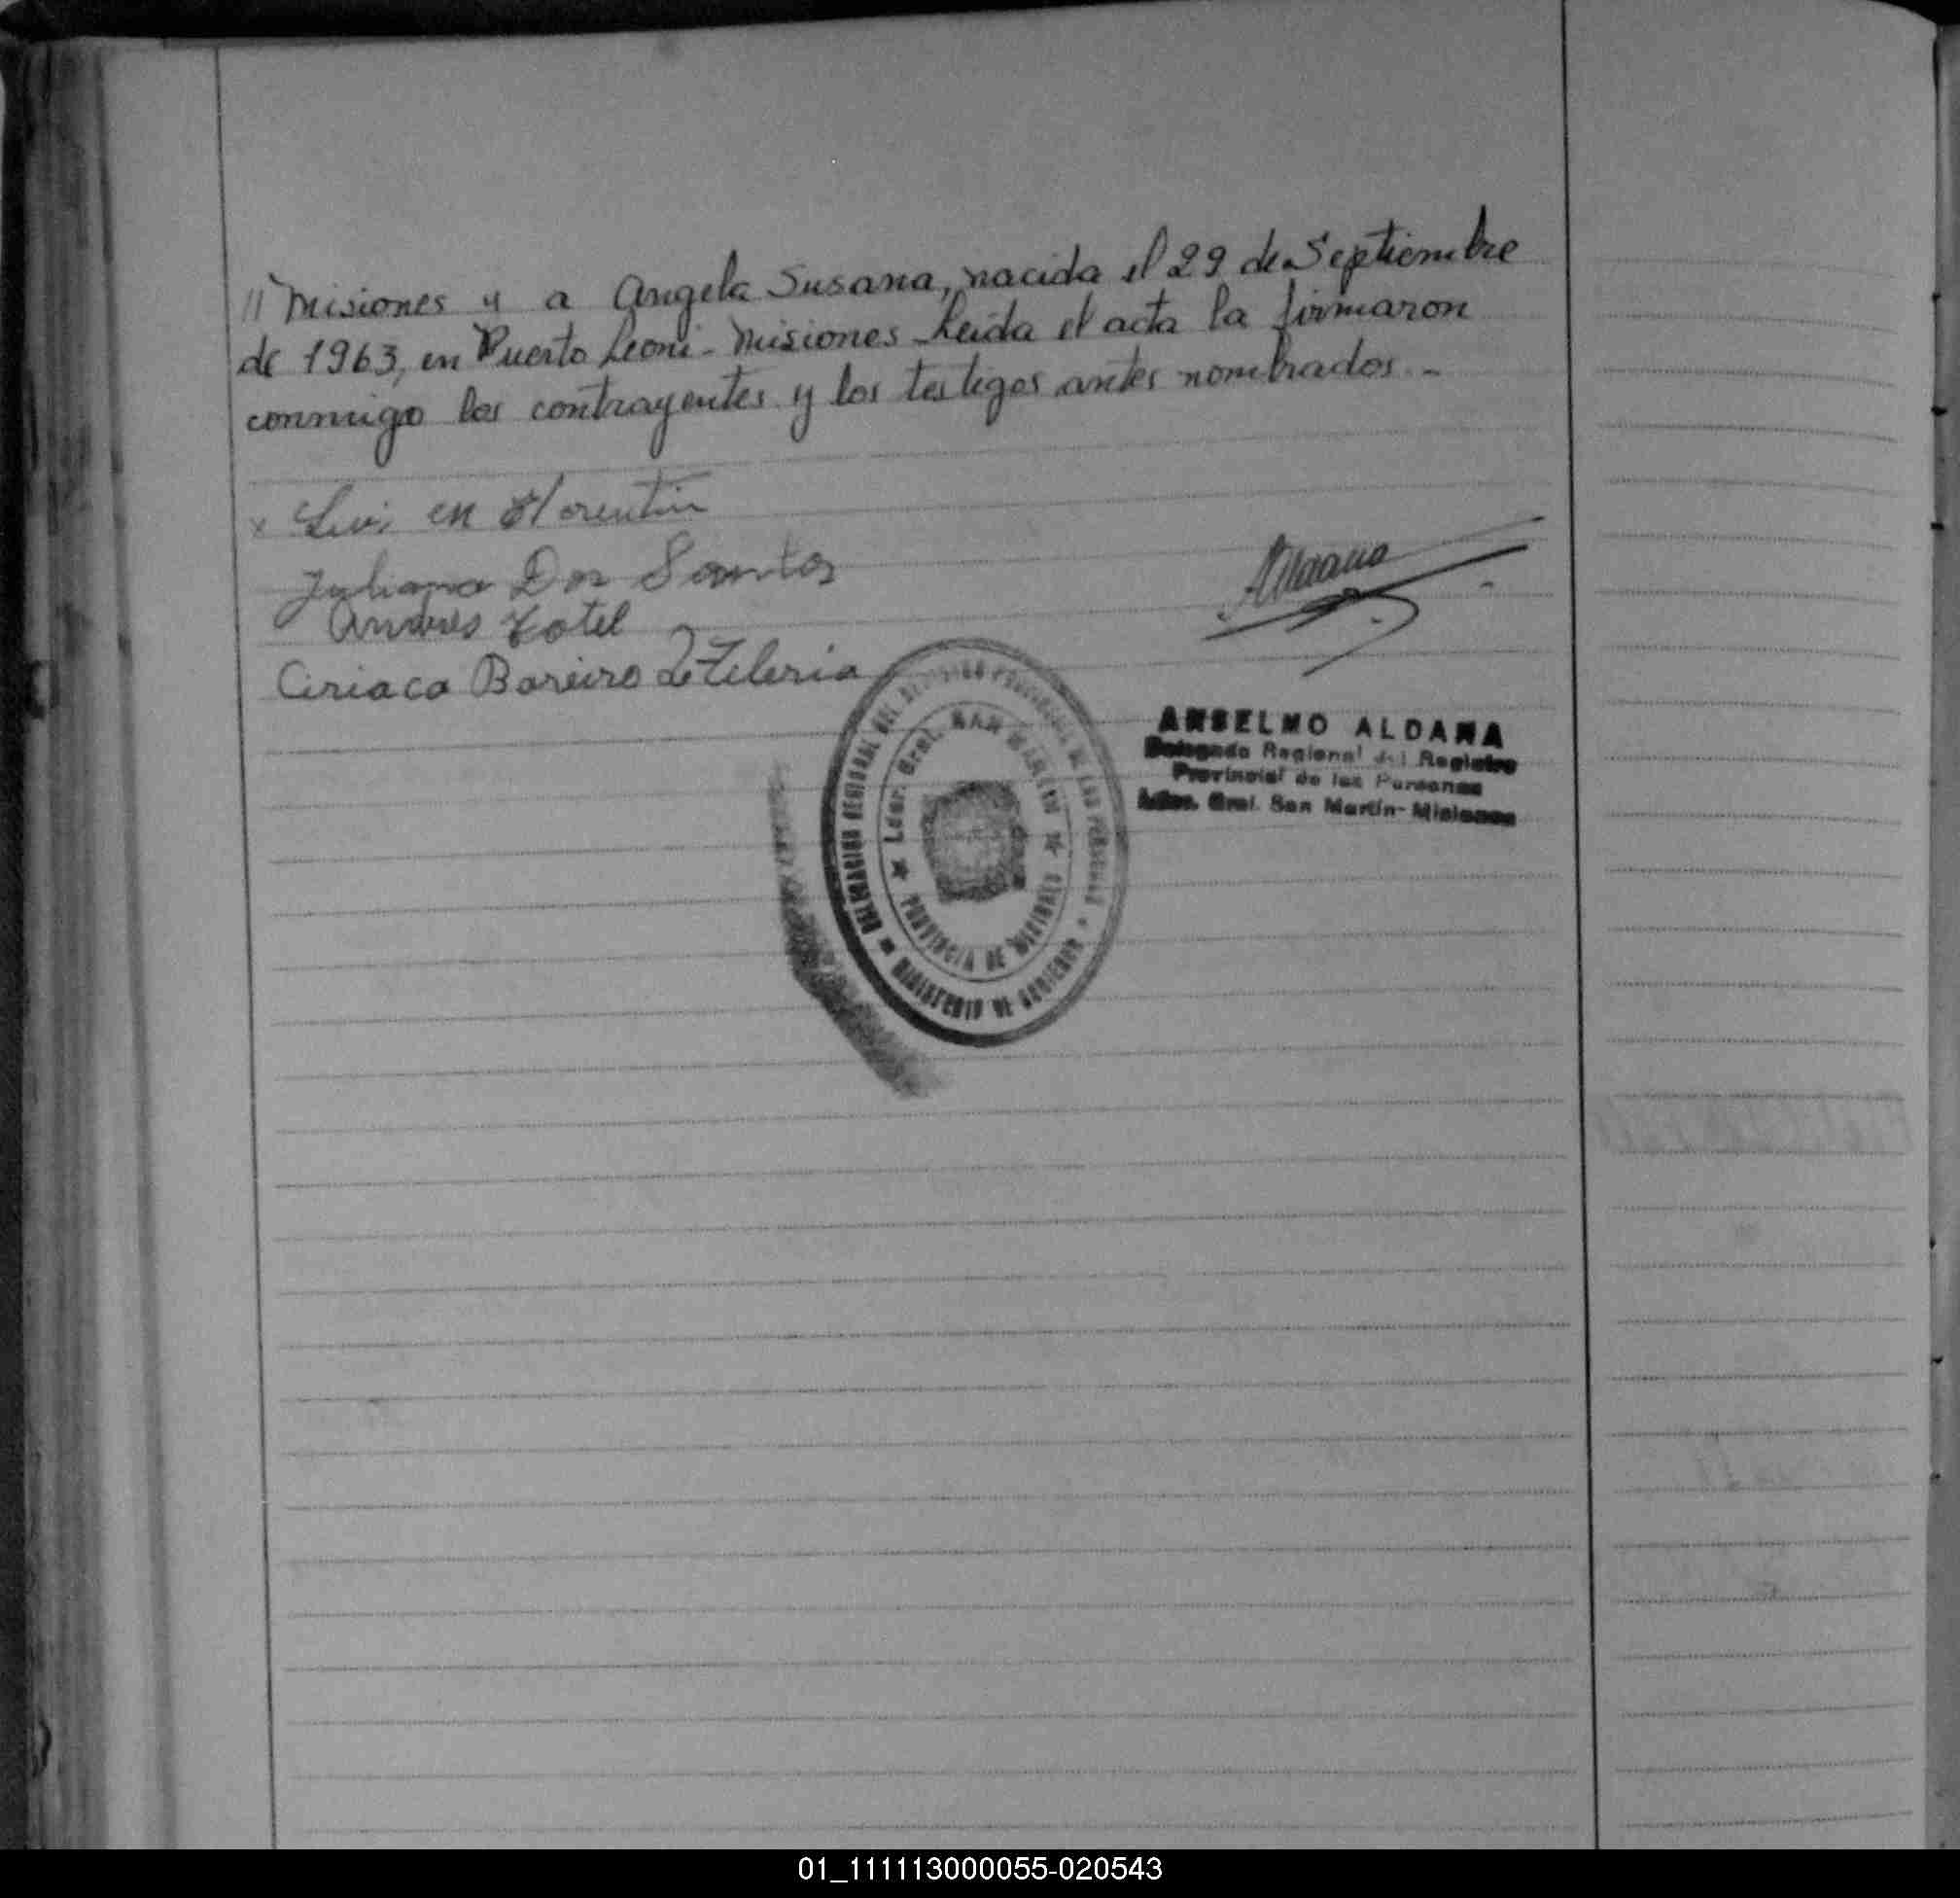 // Misiones y a Angela Susana, nacida el 29 de Septiembre
de 1963, en Puerto Leoni - Misiones Leida el acta la firmaron
conmigo los contrayentes y los testigos antes nombrados. -
x en Florentin
Juliana Dos Santos
Andres Totel
Ciriaca Bareiro De Zileria
Aldana
ANSELMO ALDANA
Delegado Regional del Registro
Provincial de las Personas
Ldor. Gral. San Martín - Misiones
DELEGACION REGIONAL DEL REGISTRO PROVINCIAL DE LAS PERSONAS
MINISTERIO DE GOBIERNO
Ldor. Gral. SAN MARTIN
PROVINCIA DE MISIONES
01_111113000055-020543